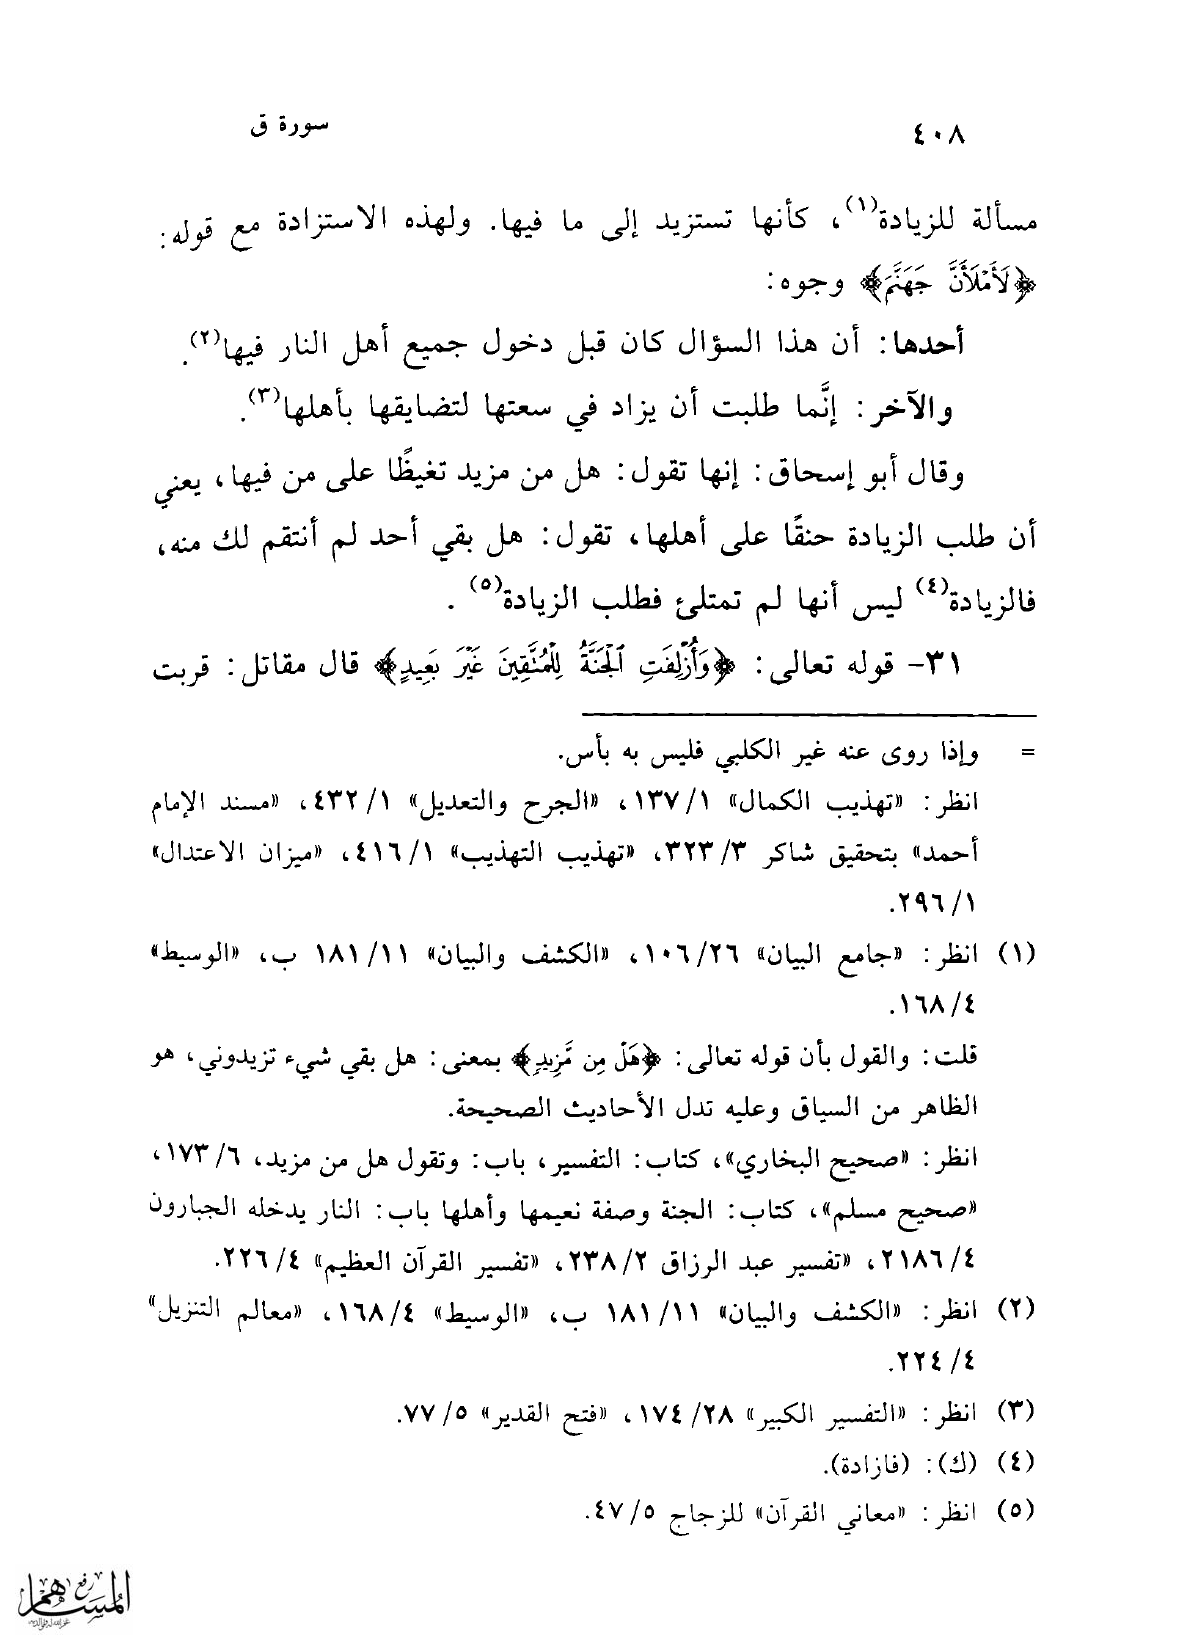 ٤٠٨ سورة ق
مسألة للزيادة(١)، كأنها تستزيد إلى ما فيها. ولهذه الاستزادة مع قوله:
﴿لَأَمْلَأَنَّ جَهَنَّمَ﴾ وجوه:
أحدها: أن هذا السؤال كان قبل دخول جميع أهل النار فيها(٢).
والآخر: إنَّما طلبت أن يزاد في سعتها لتضايقها بأهلها(٣).
وقال أبو إسحاق: إنها تقول: هل من مزيد تغيظًا على من فيها، يعني
أن طلب الزيادة حنقًا على أهلها، تقول: هل بقي أحد لم أنتقم لك منه،
فالزيادة(٤) ليس أنها لم تمتلئ فطلب الزيادة(٥) .
٣١- قوله تعالى: ﴿وَأُزْلِفَتِ ٱلْجَنَّةُ لِلْمُتَّقِينَ غَيْرَ بَعِيدٍ﴾ قال مقاتل: قربت
= وإذا روى عنه غير الكلبي فليس به بأس.
انظر: «تهذيب الكمال» ١/ ١٣٧، «الجرح والتعديل» ١/ ٤٣٢، «مسند الإمام
أحمد» بتحقيق شاكر ٣/ ٣٢٣، «تهذيب التهذيب» ١/ ٤١٦، «ميزان الاعتدال»
١/ ٢٩٦.
(١) انظر: «جامع البيان» ٢٦/ ١٠٦، «الكشف والبيان» ١١/ ١٨١ ب، «الوسيط»
٤/ ١٦٨.
قلت: والقول بأن قوله تعالى: ﴿هَلْ مِن مَّزِيدٍ﴾ بمعنى: هل بقي شيء تزيدوني، هو
الظاهر من السياق وعليه تدل الأحاديث الصحيحة.
انظر: «صحيح البخاري»، كتاب: التفسير، باب: وتقول هل من مزيد، ٦/ ١٧٣،
«صحيح مسلم»، كتاب: الجنة وصفة نعيمها وأهلها باب: النار يدخله الجبارون
٤/ ٢١٨٦، «تفسير عبد الرزاق ٢/ ٢٣٨، «تفسير القرآن العظيم» ٤/ ٢٢٦.
(٢) انظر: «الكشف والبيان» ١١/ ١٨١ ب، «الوسيط» ٤/ ١٦٨، «معالم التنزيل»
٤/ ٢٢٤.
(٣) انظر: «التفسير الكبير» ٢٨/ ١٧٤، «فتح القدير» ٥/ ٧٧.
(٤) (ك): (فازادة).
(٥) انظر: «معاني القرآن» للزجاج ٥/ ٤٧.